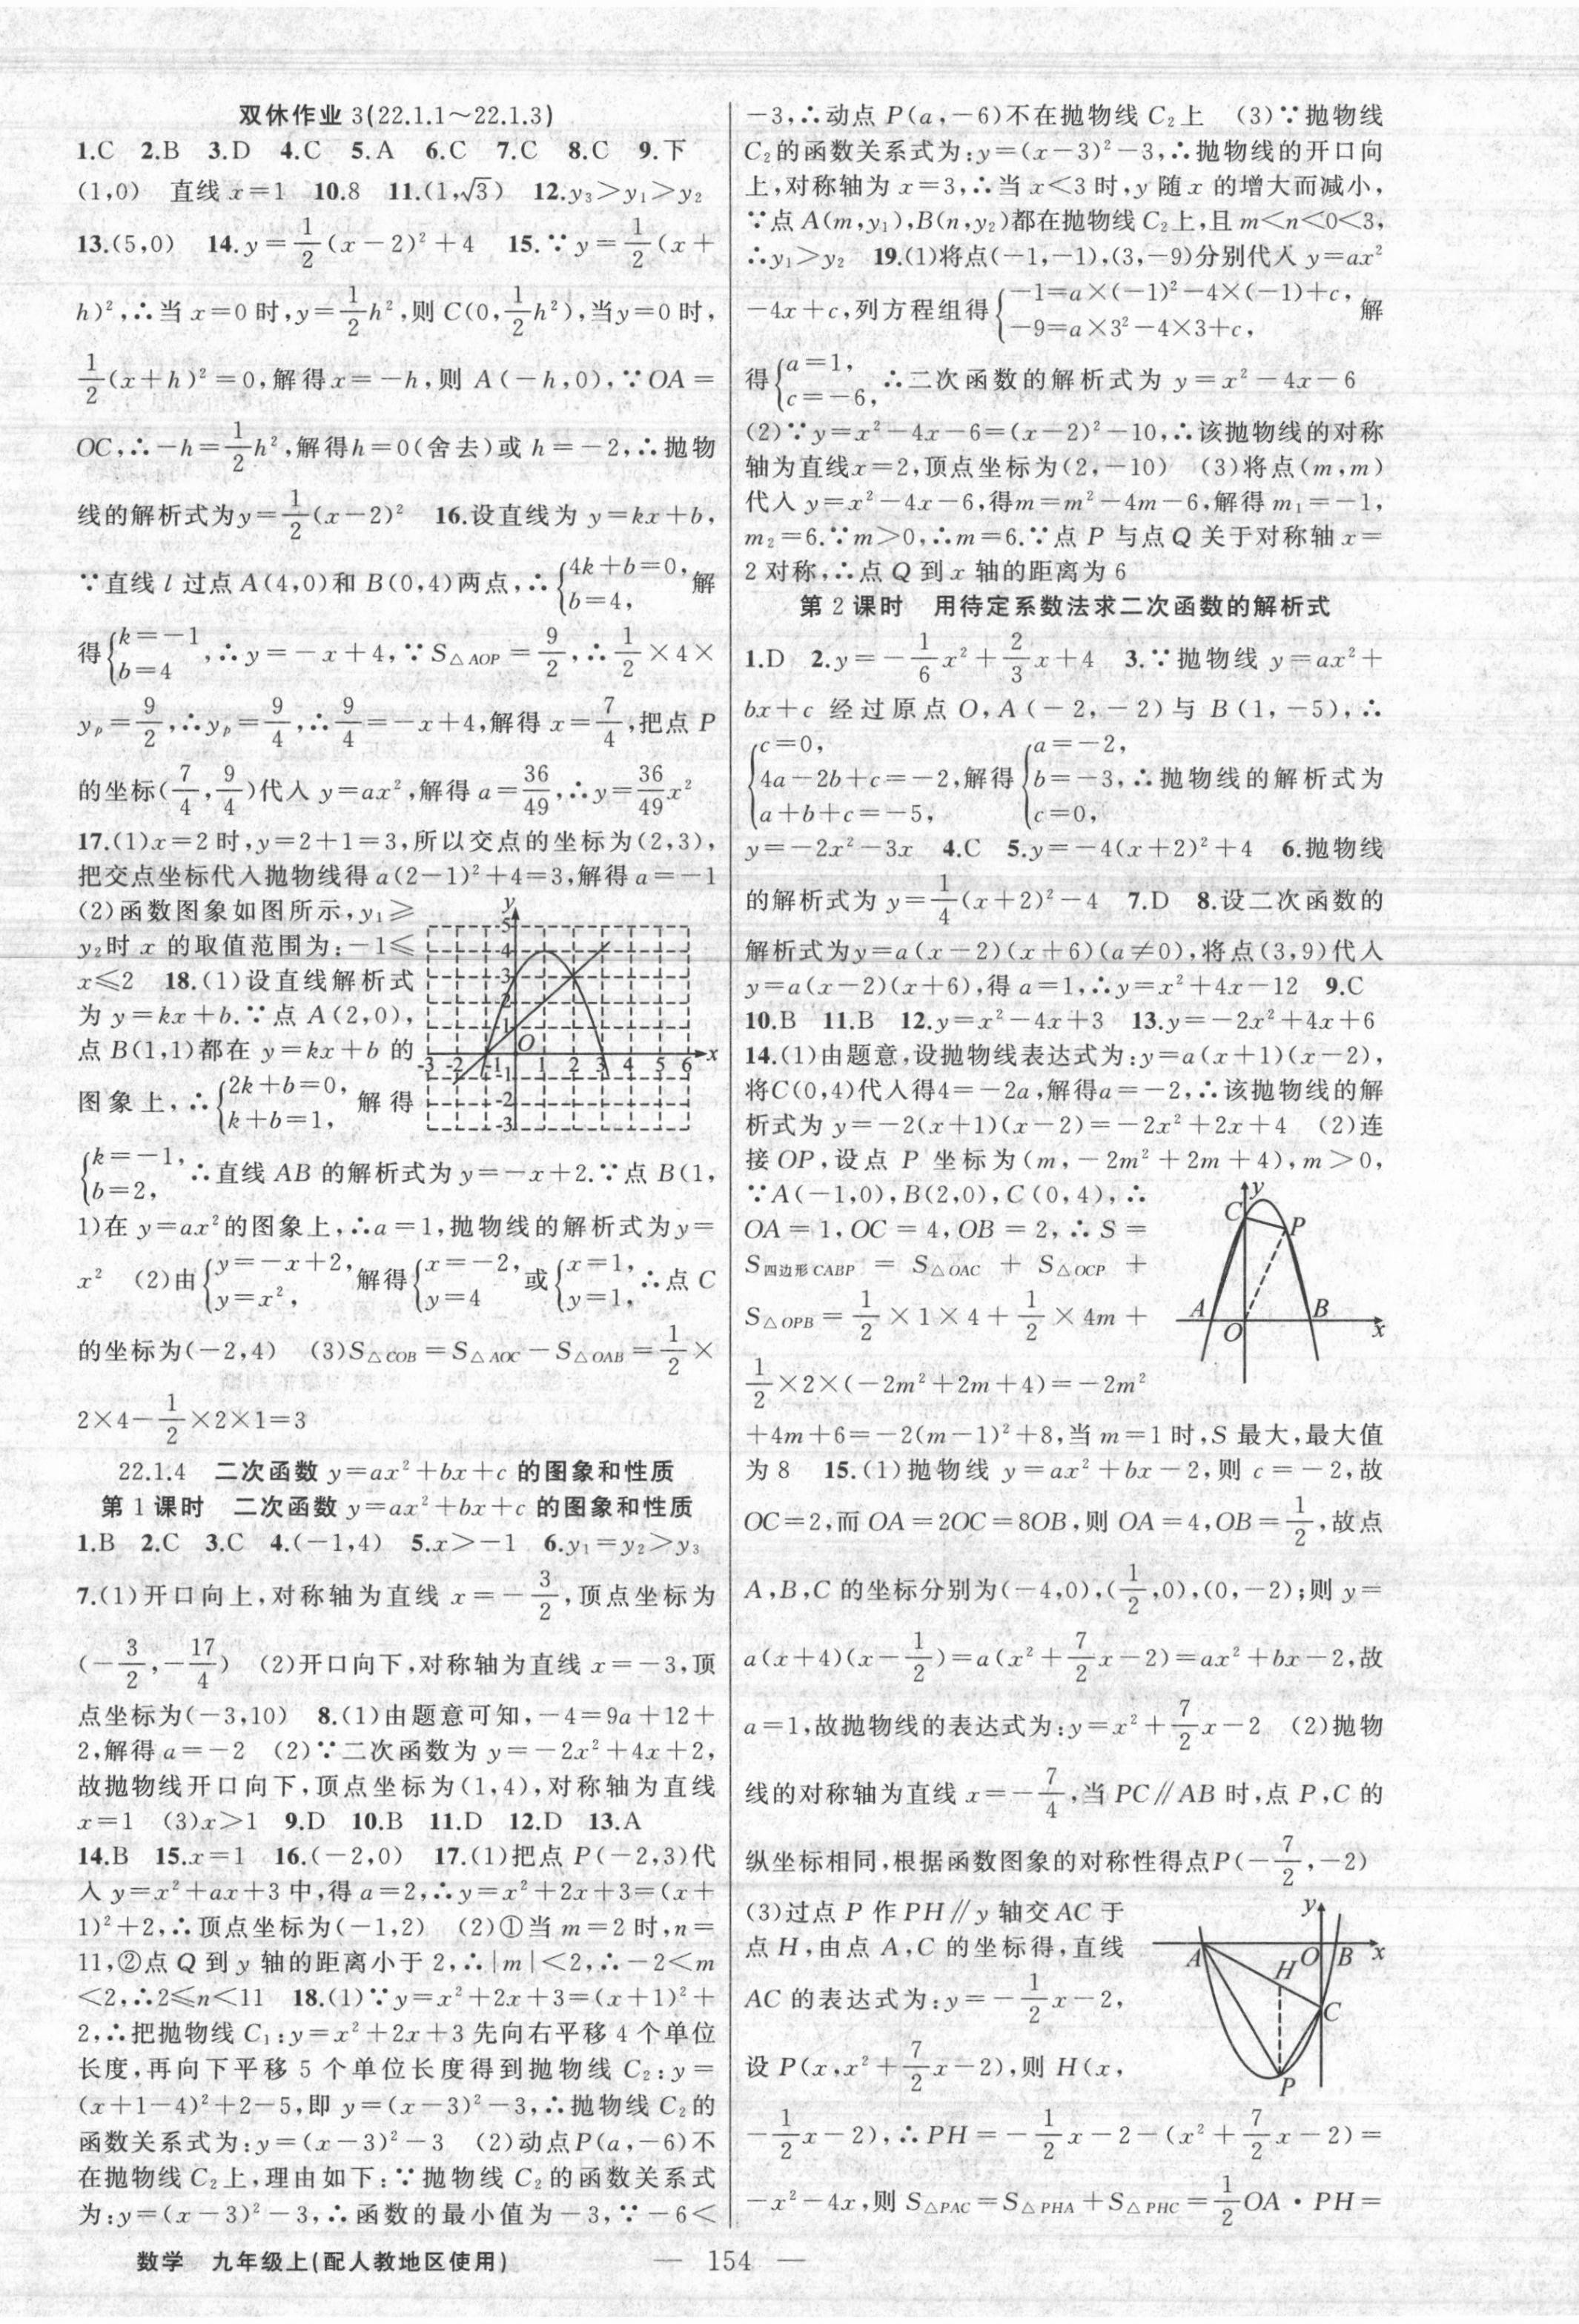 双休作业 3(22.1.1～22.1.3)
1.C 2.B 3.D 4.C 5.A 6.C 7.C 8.C 9.下
(1,0) 直线 x=1 10.8 11.(1,√3) 12.y₃>y₁>y₂
13.(5,0) 14.y=1/2(x-2)²+4 15.∵y=1/2(x+
h)²,∴当 x=0 时,y=1/2h²,则 C(0,1/2h²),当y=0 时,
1/2(x+h)²=0,解得x=-h,则 A(-h,0),∵OA=
OC,∴-h=1/2h²,解得h=0(舍去)或 h=-2,∴抛物
线的解析式为y=1/2(x-2)² 16.设直线为 y=kx+b,
∵直线 l 过点 A(4,0)和 B(0,4)两点,∴{4k+b=0, b=4, 解
得{k=-1 b=4,∴y=-x+4,∵S△AOP=9/2,∴1/2×4×
yₚ=9/2,∴yₚ=9/4,∴9/4=-x+4,解得 x=7/4,把点 P
的坐标(7/4,9/4)代入 y=ax²,解得 a=36/49,∴y=36/49x²
17.(1)x=2 时,y=2+1=3,所以交点的坐标为(2,3),
把交点坐标代入抛物线得 a(2-1)²+4=3,解得 a=-1
(2)函数图象如图所示,y₁≥
y₂时 x 的取值范围为:-1≤
x≤2 18.(1)设直线解析式
为 y=kx+b.∵点 A(2,0),
点 B(1,1)都在 y=kx+b 的
图象上,∴{2k+b=0, k+b=1, 解得
y
5
4
3
2
1
O
-3 -2 -1 1 2 3 4 5 6 x
-1
-2
-3
{k=-1, b=2, ∴直线 AB 的解析式为 y=-x+2.∵点 B(1,
1)在 y=ax²的图象上,∴a=1,抛物线的解析式为y=
x² (2)由{y=-x+2, y=x², 解得{x=-2, y=4 或{x=1, y=1, ∴点 C
的坐标为(-2,4) (3)S△COB=S△AOC-S△OAB=1/2×
2×4-1/2×2×1=3
22.1.4 二次函数 y=ax²+bx+c 的图象和性质
第 1 课时 二次函数 y=ax²+bx+c 的图象和性质
1.B 2.C 3.C 4.(-1,4) 5.x>-1 6.y₁=y₂>y₃
7.(1)开口向上,对称轴为直线 x=-3/2,顶点坐标为
(-3/2,-17/4) (2)开口向下,对称轴为直线 x=-3,顶
点坐标为(-3,10) 8.(1)由题意可知,-4=9a+12+
2,解得 a=-2 (2)∵二次函数为 y=-2x²+4x+2,
故抛物线开口向下,顶点坐标为(1,4),对称轴为直线
x=1 (3)x>1 9.D 10.B 11.D 12.D 13.A
14.B 15.x=1 16.(-2,0) 17.(1)把点 P(-2,3)代
入 y=x²+ax+3 中,得 a=2,∴y=x²+2x+3=(x+
1)²+2,∴顶点坐标为(-1,2) (2)①当 m=2 时,n=
11,②点 Q 到 y 轴的距离小于 2,∴|m|<2,∴-2<m
<2,∴2≤n<11 18.(1)∵y=x²+2x+3=(x+1)²+
2,∴把抛物线 C₁:y=x²+2x+3 先向右平移 4 个单位
长度,再向下平移 5 个单位长度得到抛物线 C₂:y=
(x+1-4)²+2-5,即 y=(x-3)²-3,∴抛物线 C₂的
函数关系式为:y=(x-3)²-3 (2)动点P(a,-6)不
在抛物线 C₂上,理由如下:∵抛物线 C₂的函数关系式
为:y=(x-3)²-3,∴函数的最小值为-3,∵-6<
-3,∴动点 P(a,-6)不在抛物线 C₂上 (3)∵抛物线
C₂的函数关系式为:y=(x-3)²-3,∴抛物线的开口向
上,对称轴为 x=3,∴当 x<3 时,y 随 x 的增大而减小,
∵点 A(m,y₁),B(n,y₂)都在抛物线 C₂上,且 m<n<0<3,
∴y₁>y₂ 19.(1)将点(-1,-1),(3,-9)分别代入 y=ax²
-4x+c,列方程组得{-1=a×(-1)²-4×(-1)+c, -9=a×3²-4×3+c, 解
得{a=1, c=-6, ∴二次函数的解析式为 y=x²-4x-6
(2)∵y=x²-4x-6=(x-2)²-10,∴该抛物线的对称
轴为直线x=2,顶点坐标为(2,-10) (3)将点(m,m)
代入 y=x²-4x-6,得m=m²-4m-6,解得 m₁=-1,
m₂=6.∵m>0,∴m=6.∵点 P 与点Q 关于对称轴 x=
2 对称,∴点 Q 到 x 轴的距离为 6
第 2 课时 用待定系数法求二次函数的解析式
1.D 2.y=-1/6x²+2/3x+4 3.∵抛物线 y=ax²+
bx+c 经过原点 O,A(-2,-2)与 B(1,-5),∴
{c=0, 4a-2b+c=-2, a+b+c=-5, 解得{a=-2, b=-3, c=0, ∴抛物线的解析式为
y=-2x²-3x 4.C 5.y=-4(x+2)²+4 6.抛物线
的解析式为 y=1/4(x+2)²-4 7.D 8.设二次函数的
解析式为y=a(x-2)(x+6)(a≠0),将点(3,9)代入
y=a(x-2)(x+6),得 a=1,∴y=x²+4x-12 9.C
10.B 11.B 12.y=x²-4x+3 13.y=-2x²+4x+6
14.(1)由题意,设抛物线表达式为:y=a(x+1)(x-2),
将C(0,4)代入得4=-2a,解得a=-2,∴该抛物线的解
析式为 y=-2(x+1)(x-2)=-2x²+2x+4 (2)连
接 OP,设点 P 坐标为(m,-2m²+2m+4),m>0,
∵A(-1,0),B(2,0),C(0,4),∴
OA=1,OC=4,OB=2,∴S=
S四边形CABP = S△OAC + S△OCP +
S△OPB=1/2×1×4+1/2×4m+
1/2×2×(-2m²+2m+4)=-2m²
y
C
P
A
B
O
x
+4m+6=-2(m-1)²+8,当 m=1 时,S 最大,最大值
为 8 15.(1)抛物线 y=ax²+bx-2,则 c=-2,故
OC=2,而 OA=2OC=8OB,则 OA=4,OB=1/2,故点
A,B,C 的坐标分别为(-4,0),(1/2,0),(0,-2);则 y=
a(x+4)(x-1/2)=a(x²+7/2x-2)=ax²+bx-2,故
a=1,故抛物线的表达式为:y=x²+7/2x-2 (2)抛物
线的对称轴为直线 x=-7/4,当 PC∥AB 时,点 P,C 的
纵坐标相同,根据函数图象的对称性得点P(-7/2,-2)
(3)过点 P 作 PH∥y 轴交 AC 于
点 H,由点 A,C 的坐标得,直线
AC 的表达式为:y=-1/2x-2,
设 P(x,x²+7/2x-2),则 H(x,
y
A
O
B
x
H
C
P
-1/2x-2),∴PH=-1/2x-2-(x²+7/2x-2)=
-x²-4x,则 S△PAC=S△PHA+S△PHC=1/2OA·PH=
数学 九年级上(配人教地区使用) — 154 —